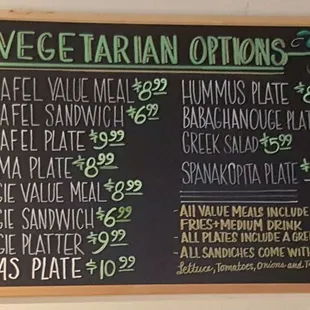 VEGETARIAN OPTIONS
AFEL VALUE MEAL $8.99
AFEL SANDWICH $6.99
AFEL PLATE $9.99
MA PLATE $8.99
GIE VALUE MEAL $8.99
GIE SANDWICH $6.99
GIE PLATTER $9.99
AS PLATE $10.99
HUMMUS PLATE $8
BABAGHANOUGE PLAT
GREEK SALAD $5.99
SPANAKOPITA PLATE $
- ALL VALUE MEALS INCLUDE
FRIES + MEDIUM DRINK
- ALL PLATES INCLUDE A GRE
- ALL SANDICHES COME WITH
Lettuce, Tomatoes, Onions and T